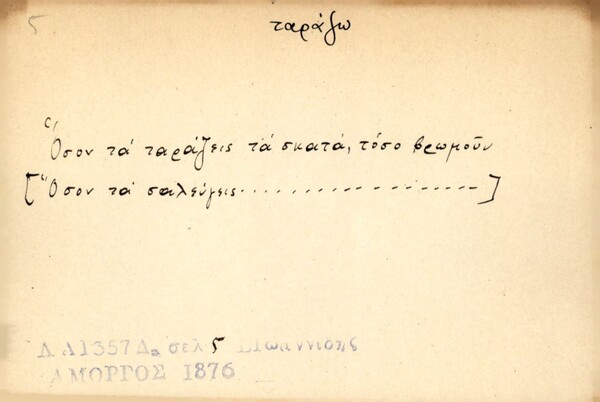 5
ταράζω
Ὅσον τά ταράζεις τά σκατά, τόσο βρωμοῦν
[Ὅσον τά σαλεύγεις....................]
Λ Α 1357 Δ. σελ 5 Ε Ιωαννίδης
ΑΜΟΡΓΟΣ 1876